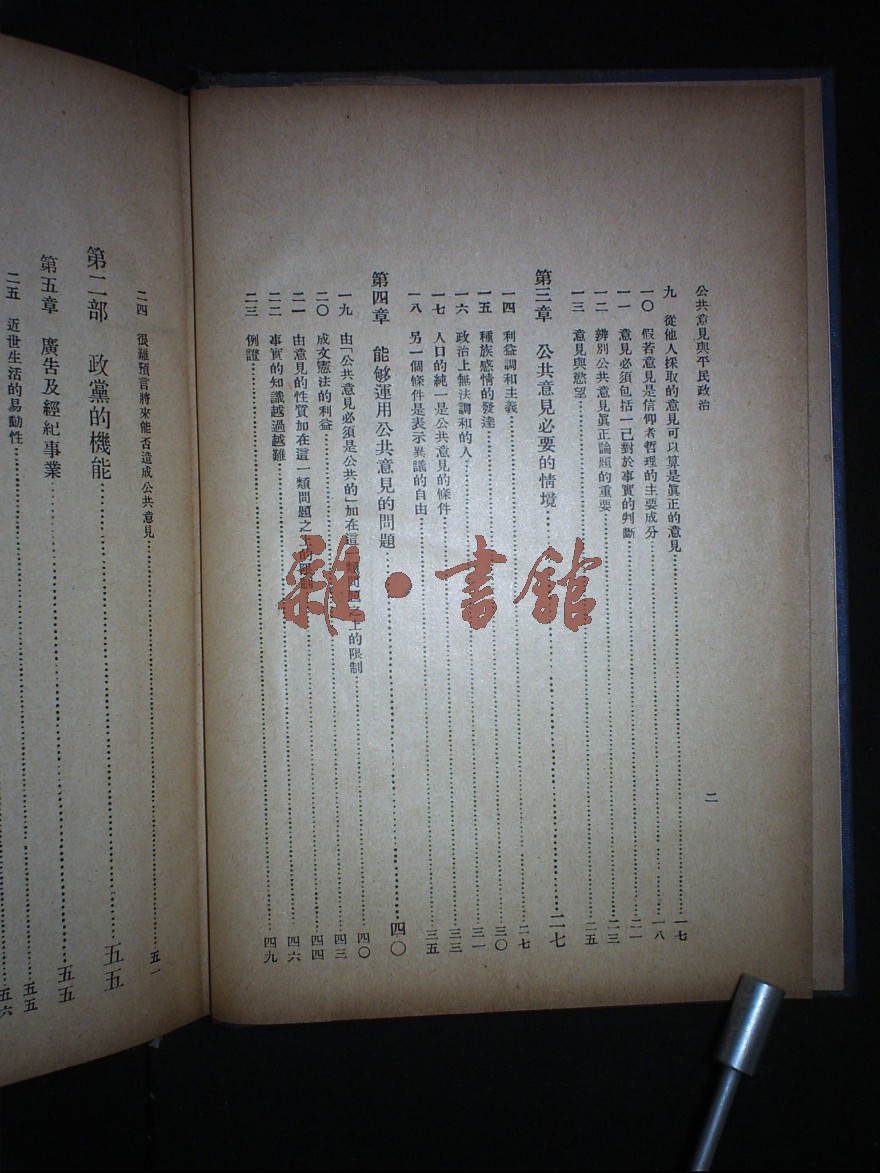 公共意見與平民政治
二
九 從他人採取的意見可以算是眞正的意見……一七
一〇 假若意見是信仰者哲理的主要成分……一八
一一 意見必須包括一己對於事實的判斷……二一
一二 辨別公共意見眞正論題的重要……二三
一三 意見與慾望……二五
第三章 公共意見必要的情境……二七
一四 利益調和主義……二七
一五 種族感情的發達……三〇
一六 政治上無法調和的人……三一
一七 人口的純一是公共意見的條件……三三
一八 另一個條件是表示異議的自由……三五
第四章 能够運用公共意見的問題……四〇
一九 由「公共意見必須是公共的」加在這一類問題之上的限制……四〇
二〇 成文憲法的利益……四三
二一 由意見的性質加在這一類問題之上的限制……四四
二二 事實的知識越過越難……四六
二三 例證……四九
二四 很難預言將來能否造成公共意見……五一
第二部 政黨的機能……五五
第五章 廣告及經紀事業……五五
二五 近世生活的易動性……五五
五六
雜·書館